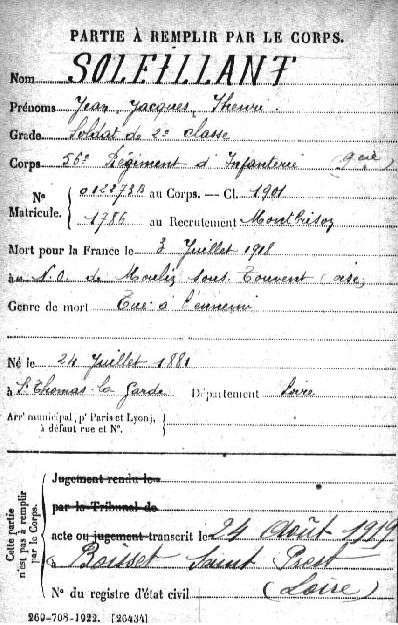 PARTIE À REMPLIR PAR LE CORPS.
Nom SOLEILLANT
Prénoms Jean, Jacques, Thenri.
Grade Soldat de 2e classe
Corps 56e Régiment d'Infanterie (9e cie)
No Matricule. { 012273B au Corps. — Cl. 1901
1786 au Recrutement Montbrison
Mort pour la France le 3 Juillet 1918
à N.O. de Moulin sous Touvent (oise)
Genre de mort Tué à l'ennemi
Né le 24 Juillet 1881
à St Thomas-la Garde Département Loire
Arrt municipal, pr Paris et Lyon,
à défaut rue et No.
Cette partie n'est pas à remplir par le Corps.
Jugement rendu le
par le Tribunal de
acte ou jugement transcrit le 24 Août 1919
à Boisset Saint Priest
(Loire)
No du registre d'état civil
269-708-1922. [26434]